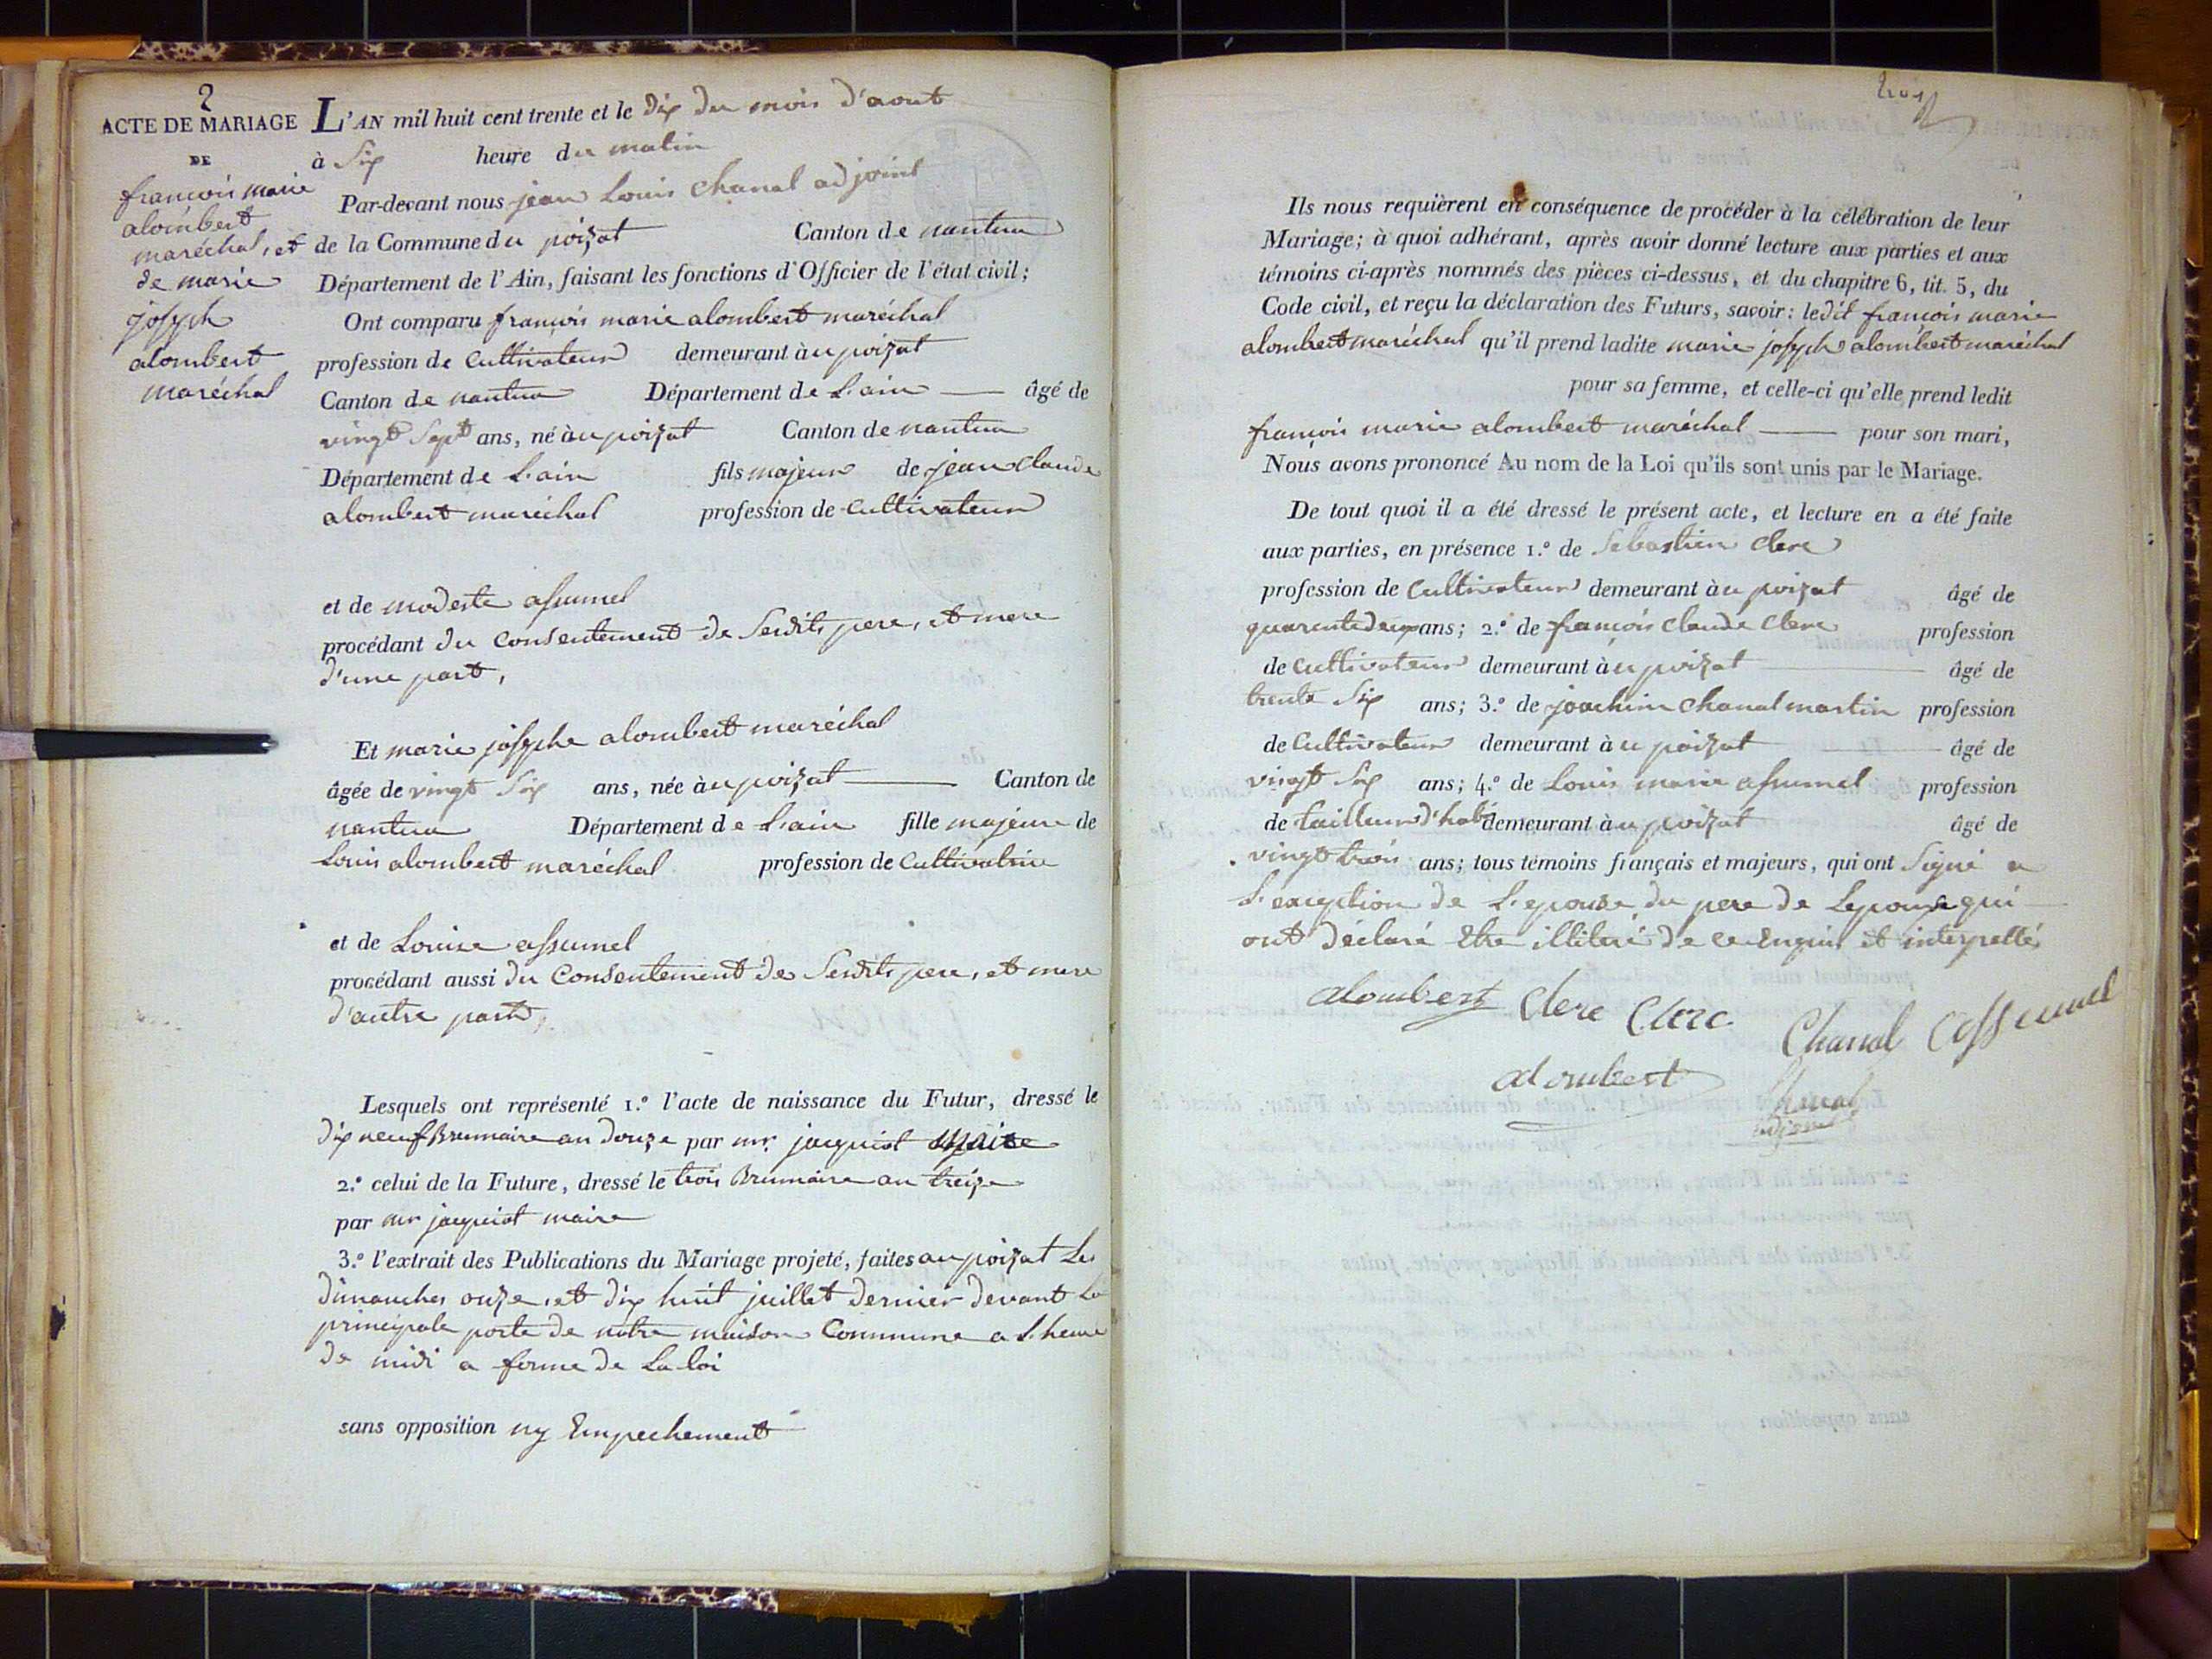 2
ACTE DE MARIAGE
DE
françois marie
alombert
maréchal, et
de marie
joseph
alombert
maréchal
L'AN mil huit cent trente et le dix du mois d'aout
à Six heure du matin
Par-devant nous jean Louis chanal adjoint
de la Commune du poizat Canton de nantua
Département de l'Ain, faisant les fonctions d'Officier de l'état civil;
Ont comparu françois marie alombert maréchal
profession de Cultivateur demeurant à u poizat
Canton de nantua Département de L'ain âgé de
vingt Sept ans, né àu poizat Canton de nantua
Département de L'ain fils majeur de jean claude
alombert maréchal profession de Cultivateur
et de modeste assumel
procédant du Consentement de Sesdits pere, et mere
d'une part,
Et marie josephe alombert maréchal
âgée de vingt Six ans, née àu poizat Canton de
nantua Département de L'ain fille majeure de
Louis alombert maréchal profession de Cultivatrice
et de Louise assumel
procédant aussi du Consentement de Sesdits pere, et mere
d'autre part,
Lesquels ont représenté 1.º l'acte de naissance du Futur, dressé le
dix neuf Brumaire an douze par mr. jacquiot maire
2.º celui de la Future, dressé le trois Brumaire an treize
par mr jacquiot maire
3.º l'extrait des Publications du Mariage projeté, faites au poizat Les
dimanches onze, et dix huit juillet dernier devant La
principale porte de notre maison Commune a L'heure
de midi a forme de La loi
sans opposition ny Empechement
trois
Ils nous requièrent en conséquence de procéder à la célébration de leur
Mariage; à quoi adhérant, après avoir donné lecture aux parties et aux
témoins ci-après nommés des pièces ci-dessus, et du chapitre 6, tit. 5, du
Code civil, et reçu la déclaration des Futurs, savoir: ledit françois marie
alombert maréchal qu'il prend ladite marie joseph alombert maréchal
pour sa femme, et celle-ci qu'elle prend ledit
françois marie alombert maréchal pour son mari,
Nous avons prononcé Au nom de la Loi qu'ils sont unis par le Mariage.
De tout quoi il a été dressé le présent acte, et lecture en a été faite
aux parties, en présence 1.º de Sebastien clerc
profession de Cultivateur demeurant àu poizat âgé de
quarente deux ans; 2.º de françois claude clerc profession
de cultivateur demeurant àu poizat âgé de
trente Six ans; 3.º de joachim chanal martin profession
de Cultivateur demeurant à u poizat âgé de
vingt Six ans; 4.º de Louis marie assumel profession
de tailleur d'habi demeurant àu poizat âgé de
vingt trois ans; tous témoins français et majeurs, qui ont Signé a
L'exception de L'epouse du pere de Lepouse qui
ont déclaré Etre illiteré de ce Enquis et interpellés
alombert Clerc Clerc Chanal assumel
alombert Chanal
adjoint